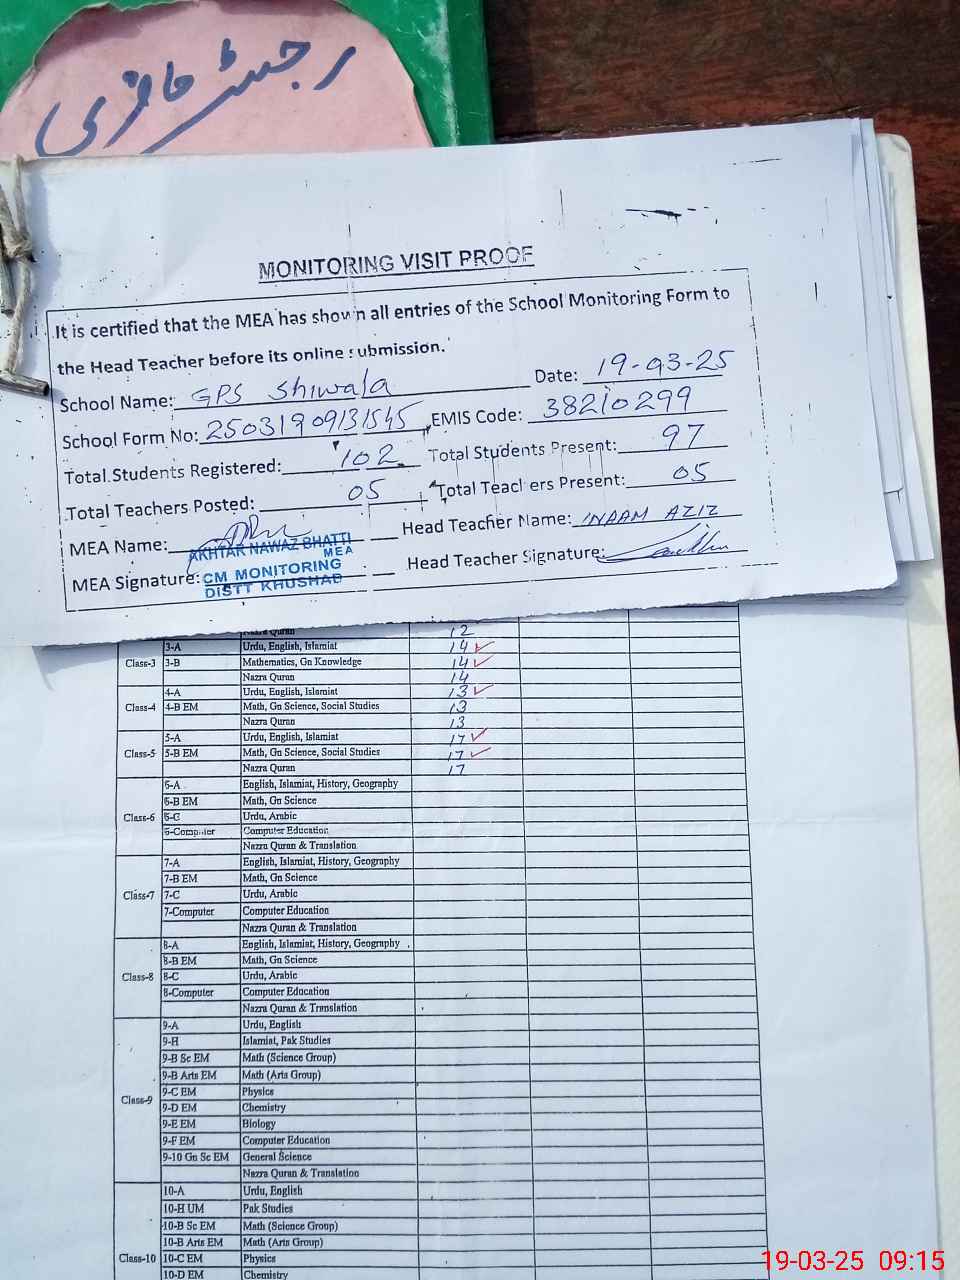 رجسٹر حاضری
MONITORING VISIT PROOF
It is certified that the MEA has shown all entries of the School Monitoring Form to
the Head Teacher before its online submission.
School Name: GPS Shiwala Date: 19-03-25
School Form No: 25031909131545 EMIS Code: 38210299
Total Students Registered: 102 Total Students Present: 97
Total Teachers Posted: 05 Total Teachers Present: 05
MEA Name: Head Teacher Name: INAAM AZIZ
AKHTAR NAWAZ BHATTI
MEA
MEA Signature: Head Teacher Signature:
CM MONITORING
DISTT KHUSHAB
Nazra Quran 12
Class-3 3-A Urdu, English, Islamiat 14
3-B Mathematics, Gn Knowledge 14
Nazra Quran 14
Class-4 4-A Urdu, English, Islamiat 13
4-B EM Math, Gn Science, Social Studies 13
Nazra Quran 13
Class-5 5-A Urdu, English, Islamiat 17
5-B EM Math, Gn Science, Social Studies 17
Nazra Quran 17
Class-6 6-A English, Islamiat, History, Geography
6-B EM Math, Gn Science
6-C Urdu, Arabic
6-Computer Computer Education
Nazra Quran & Translation
Class-7 7-A English, Islamiat, History, Geography
7-B EM Math, Gn Science
7-C Urdu, Arabic
7-Computer Computer Education
Nazra Quran & Translation
Class-8 8-A English, Islamiat, History, Geography
8-B EM Math, Gn Science
8-C Urdu, Arabic
8-Computer Computer Education
Nazra Quran & Translation
Class-9 9-A Urdu, English
9-H Islamiat, Pak Studies
9-B Sc EM Math (Science Group)
9-B Arts EM Math (Arts Group)
9-C EM Physics
9-D EM Chemistry
9-E EM Biology
9-F EM Computer Education
9-10 Gn Sc EM General Science
Nazra Quran & Translation
Class-10 10-A Urdu, English
10-H UM Pak Studies
10-B Sc EM Math (Science Group)
10-B Arts EM Math (Arts Group)
10-C EM Physics
10-D EM Chemistry
19-03-25 09:15